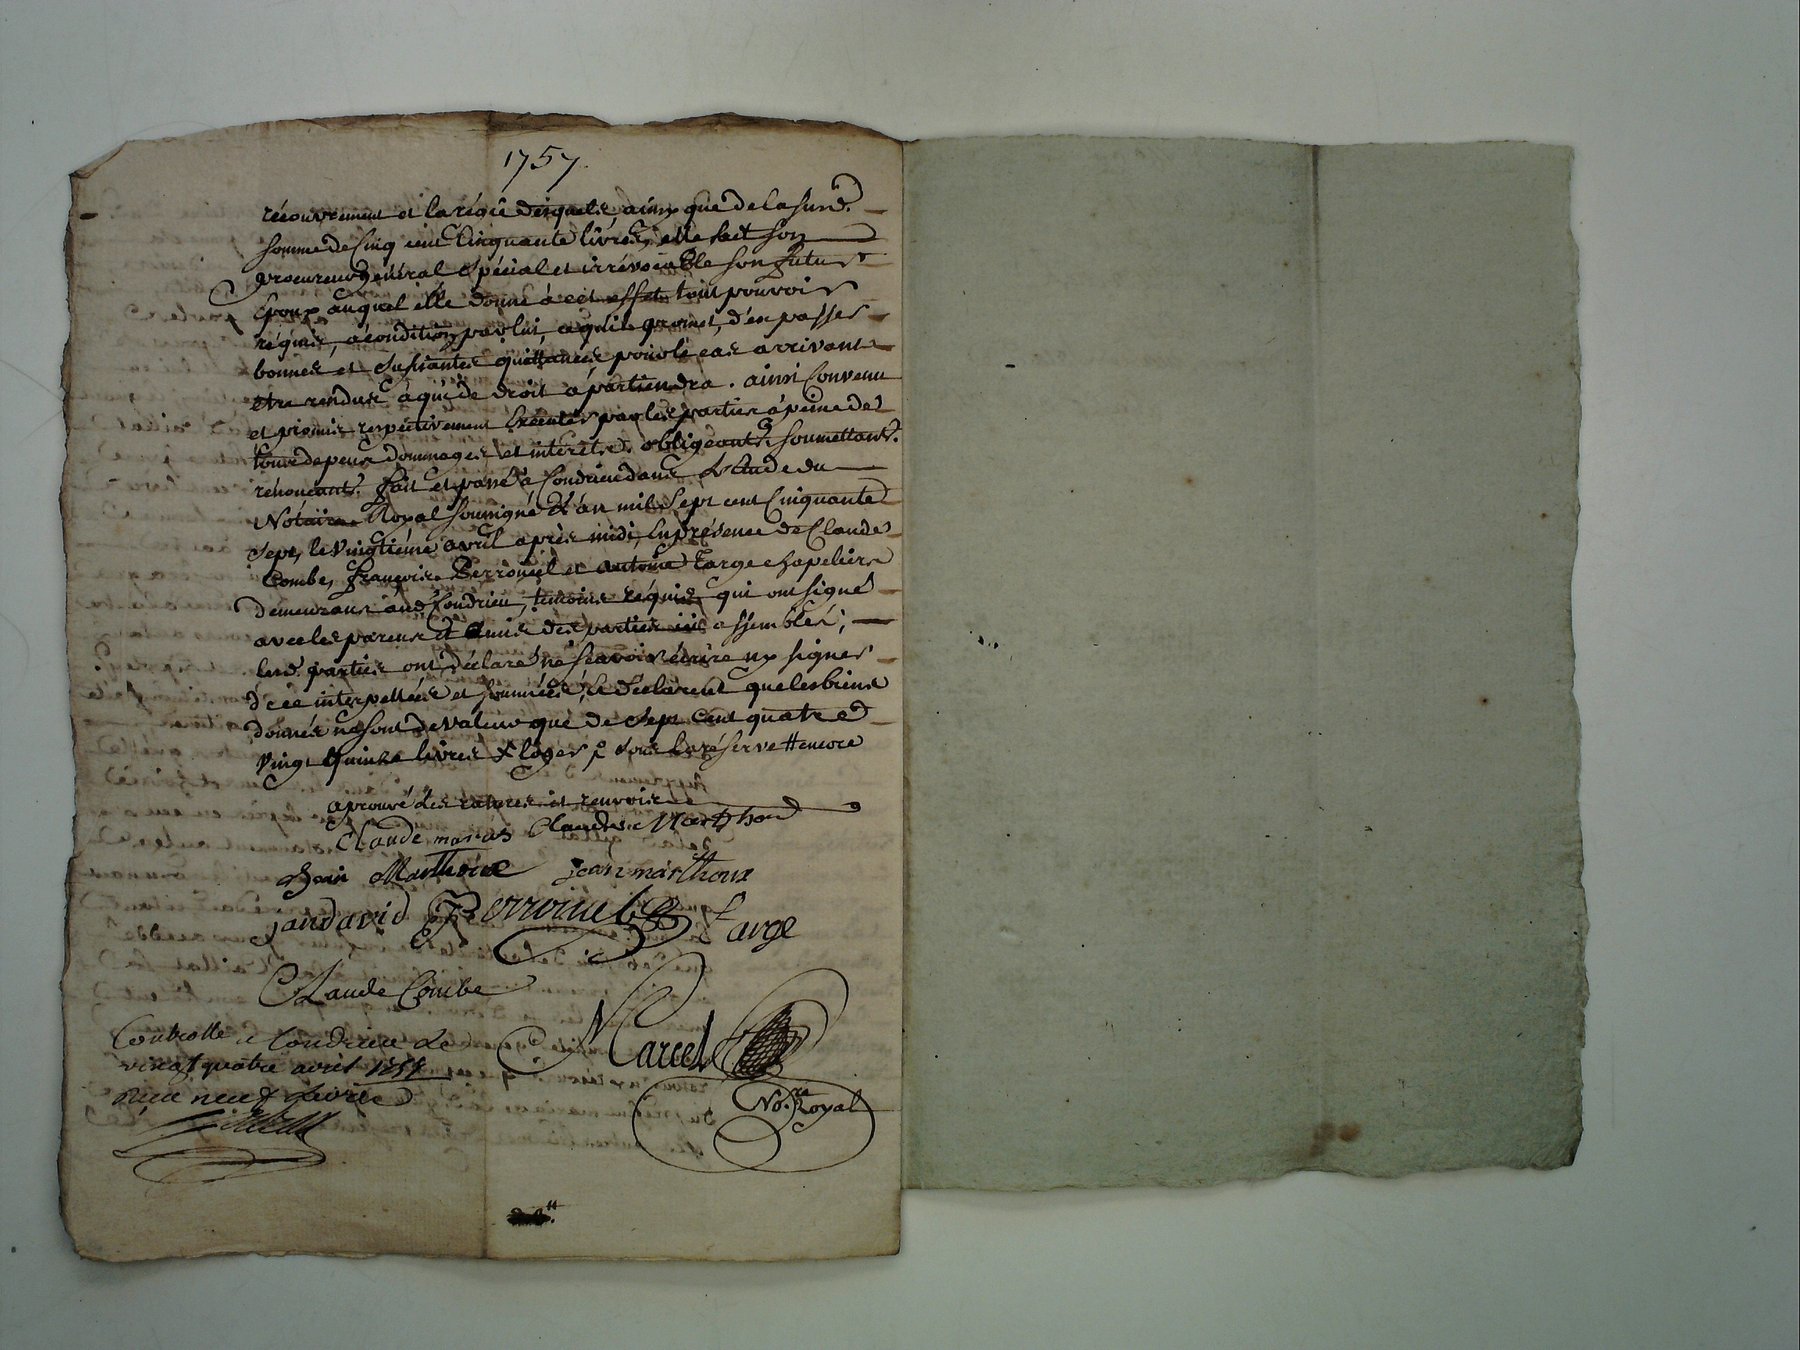 1757.
récouvrement et la régie desquels, ainsy que de la susd.
somme de Cinq cent Cinquante livres, elle fait son
procureur général spécial et irrévocable son futur
Epoux auquel elle donne à cet effet tout pouvoir
réquis, à condition par lui, a qu'il promet, d'en passer
bonnes et sufisantes quittances pour le cas arrivant
être rendus à qui de droit apartiendra. ainsi Convenu
et promis respectivement Executer par les parties à peine de
tous depens dommages et interets obligeants. soumettants.
rénonçants. fait et passé à Condrieu dans L'Etude du
Notaire Royal soussigné L'an mil sept cent Cinquante
sept, le vingtième avril après midi, En présence de Claude
Combe, françois Perrouiel et antoine Targe chapeliers
demeurans aud Condrieu, temoins réquis, qui ont signé
avec les parens et amis des parties ici assemblés;
lesd. parties ont déclaré ne sçavoir écrire ny signer
de ce interpellées et sommées, Et declarent que les biens
donnés ne sont de valeur que de sept cent quatre
vingt quinze livres sous la réserve encore
aprouvé les ratures et renvois
Claude marias Claude Marthoud
Jean Marthoue Jean marthoux
jandavid Perrouiel Targe
Claude Combe
Marcel
No.re Royal
Controllé a Condrieu le
vingt quatre avril 1757
Reçu neuf Livres